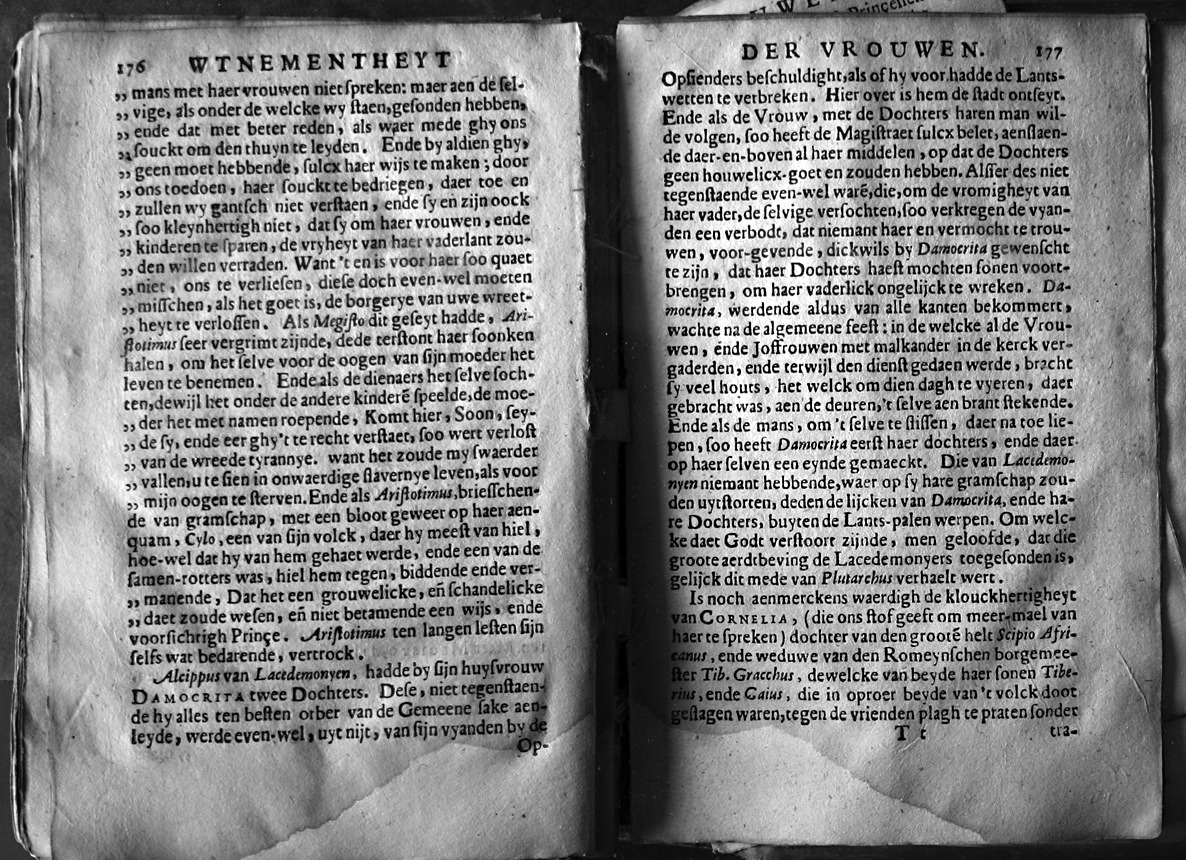 176 WTNEMENTHEYT
„ mans met haer vrouwen niet ſpreken: maer aen de ſel-
„ vige, als onder de welcke wy ſtaen, geſonden hebben,
„ ende dat met beter reden, als waer mede ghy ons
„ ſouckt om den thuyn te leyden. Ende by aldien ghy,
„ geen moet hebbende, ſulcx haer wijs te maken; door
„ ons toedoen, haer ſouckt te bedriegen, daer toe en
„ zullen wy gantſch niet verſtaen, ende ſy en zijn oock
„ ſoo kleynhertigh niet, dat ſy om haer vrouwen, ende
„ kinderen te ſparen, de vryheyt van haer vaderlant zou-
„ den willen verraden. Want 't en is voor haer ſoo quaet
„ niet, ons te verlieſen, dieſe doch even-wel moeten
„ miſſchen, als het goet is, de borgerye van uwe wreet-
„ heyt te verloſſen. Als Megiſto dit geſeyt hadde, Ari-
ſtotimus ſeer vergrimt zijnde, dede terſtont haer ſoonken
halen, om het ſelve voor de oogen van ſijn moeder het
leven te benemen. Ende als de dienaers het ſelve ſoch-
ten, dewijl het onder de andere kinderē ſpeelde, de moe-
„ der het met namen roepende, Komt hier, Soon, ſey-
„ de ſy, ende eer ghy't te recht verſtaet, ſoo wert verloſt
„ van de wreede tyrannye. want het zoude my ſwaerder
„ vallen, u te ſien in onwaerdige ſlavernye leven, als voor
„ mijn oogen te ſterven. Ende als Ariſtotimus, brieſſchen-
de van gramſchap, met een bloot geweer op haer aen-
quam, Cylo, een van ſijn volck, daer hy meeſt van hiel,
hoe-wel dat hy van hem gehaet werde, ende een van de
ſamen-rotters was, hiel hem tegen, biddende ende ver-
„ manende, Dat het een grouwelicke, en̄ ſchandelicke
„ daet zoude weſen, en̄ niet betamende een wijs, ende
voorſichtigh Prinçe. Ariſtotimus ten langen leſten ſijn
ſelfs wat bedarende, vertrock.
Alcippus van Lacedemonyen, hadde by ſijn huyſvrouw
DAMOCRITA twee Dochters. Deſe, niet tegenſtaen-
de hy alles ten beſten orber van de Gemeene ſake aen-
leyde, werde even-wel, uyt nijt, van ſijn vyanden by de
Op-
DER VROUWEN. 177
Opſienders beſchuldight, als of hy voor hadde de Lants-
wetten te verbreken. Hier over is hem de ſtadt ontſeyt.
Ende als de Vrouw, met de Dochters haren man wil-
de volgen, ſoo heeft de Magiſtraet ſulcx belet, aenſlaen-
de daer-en-boven al haer middelen, op dat de Dochters
geen houwelicx-goet en zouden hebben. Alſſer des niet
tegenſtaende even-wel warē, die, om de vromigheyt van
haer vader, de ſelvige verſochten, ſoo verkregen de vyan-
den een verbodt, dat niemant haer en vermocht te trou-
wen, voor-gevende, dickwils by Damocrita gewenſcht
te zijn, dat haer Dochters haeſt mochten ſonen voort-
brengen, om haer vaderlick ongelijck te wreken. Da-
mocrita, werdende aldus van alle kanten bekommert,
wachte na de algemeene feeſt; in de welcke al de Vrou-
wen, ende Joffrouwen met malkander in de kerck ver-
gaderden, ende terwijl den dienſt gedaen werde, bracht
ſy veel houts, het welck om dien dagh te vyeren, daer
gebracht was, aen de deuren, 't ſelve aen brant ſtekende.
Ende als de mans, om 't ſelve te ſliſſen, daer na toe lie-
pen, ſoo heeft Damocrita eerſt haer dochters, ende daer
op haer ſelven een eynde gemaeckt. Die van Lacedemo-
nyen niemant hebbende, waer op ſy hare gramſchap zou-
den uytſtorten, deden de lijcken van Damocrita, ende ha-
re Dochters, buyten de Lants-palen werpen. Om welc-
ke daet Godt verſtoort zijnde, men geloofde, dat die
groote aerdtbeving de Lacedemonyers toegeſonden is,
gelijck dit mede van Plutarchus verhaelt wert.
Is noch aenmerckens waerdigh de klouckhertigheyt
van CORNELIA, (die ons ſtof geeft om meer-mael van
haer te ſpreken) dochter van den grootē helt Scipio Afri-
canus, ende weduwe van den Romeynſchen borgemee-
ſter Tib. Gracchus, dewelcke van beyde haer ſonen Tibe-
rius, ende Caius, die in oproer beyde van 't volck doot
geſlagen waren, tegen de vrienden plagh te praten ſonder
T t tra-